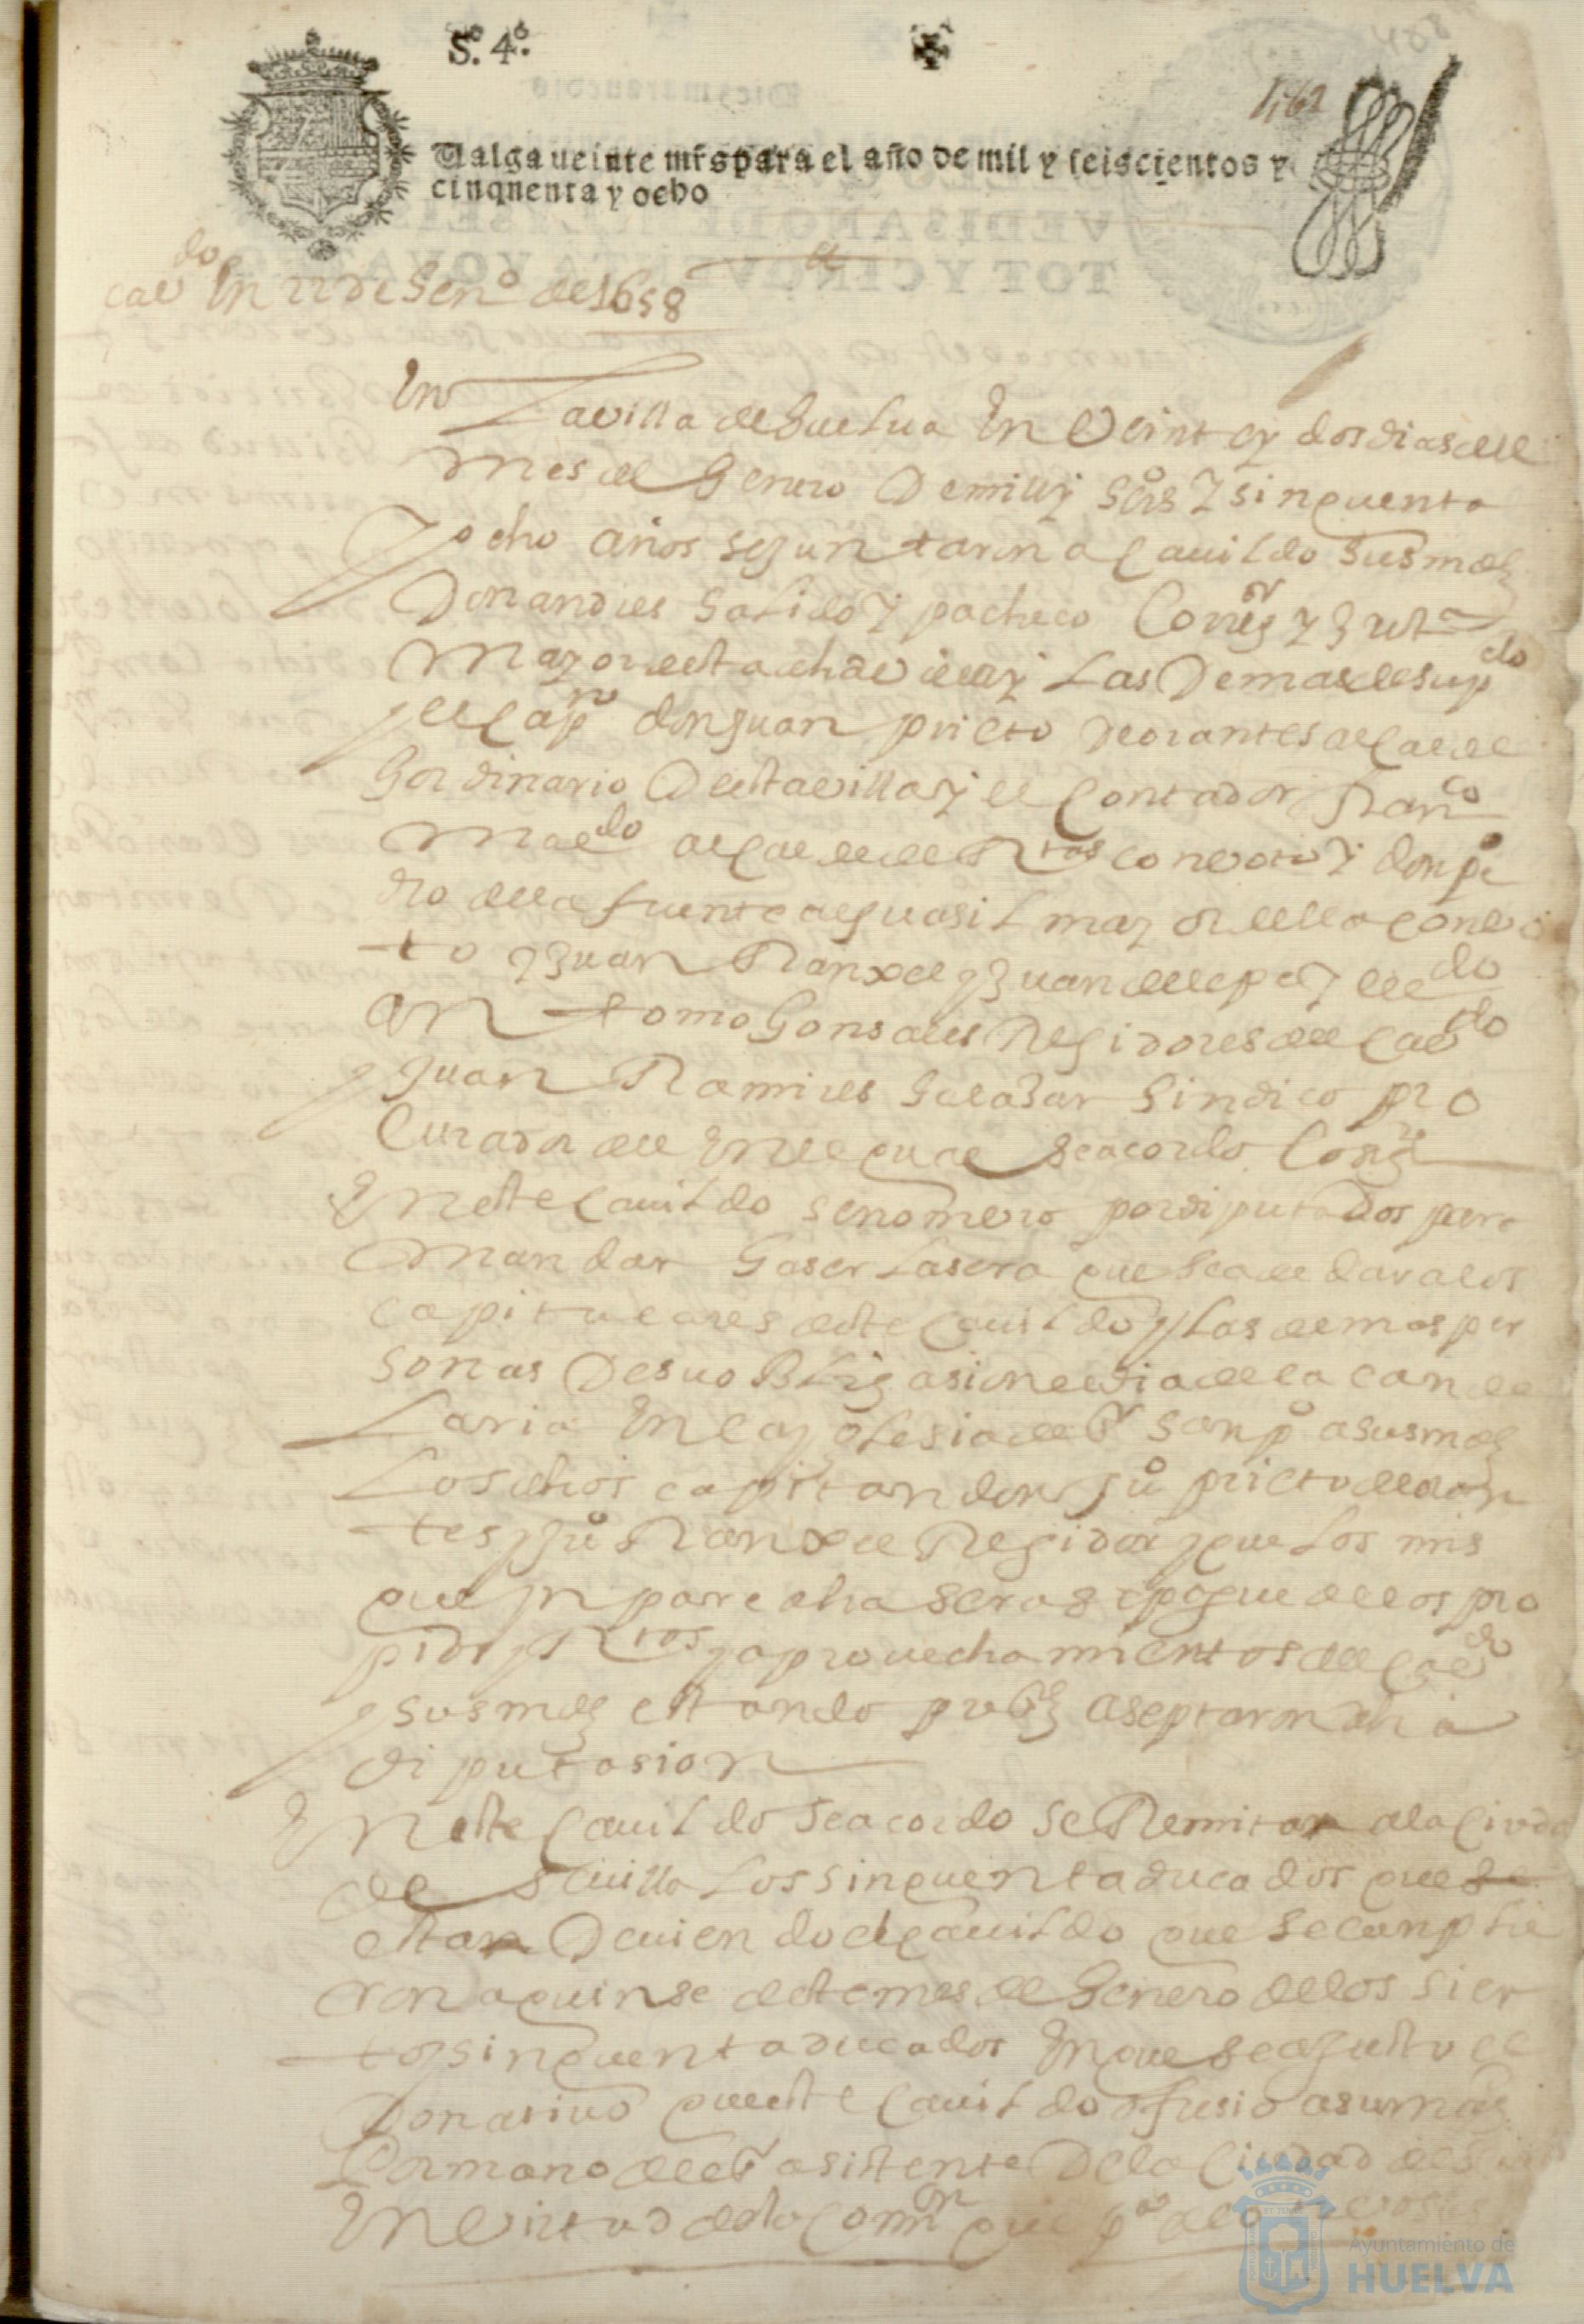 So. 4o.
Valga veinte mrs para el año de mil y seiscientos y
cinquenta y ocho
cavdo En 22 de Heno de 1658
En La villa de Huelva En Veinte y dos dias del
mes de Henero De mill y seisos y sinquenta
y ocho años se juntaron a cauildo sus mds
Don andres Salido y pacheco Corregr y Just
Mayor desta dha villa y Las Demas de su pdo
y el capn don juan prieto de orantes alcalde
hordinario Desta villa y el contador Franco
maldo alcalde de Rtas con voto y don pe
dro de la fuente alguasil mayor della con vo
to y Juan Ranxel y Juan de lepe y el ldo
an tonio Gonsales Regidores del cavdo
y juan Ramires Salasar Sindico pro
curador del En el qual se acordo Lo sigte
En este cauildo se nombro por diputados para
mandar haser La sera que se a de dar a los
capitulares deste cauildo y las demas per
sonas De su obligasion el dia de la cande
laria En la yglesia de sr san po a sus mds
Los dhos capitan don juo prieto de oran
tes y juo Ranxel Regidor y que Los mrs
que ynportare dha sera se pague de los pro
pios y Rtas y aprouechamientos del cavdo
y sus mds estando presstes aseptaron dha
diputasion
En este cauildo se acordo se Remitan a la ciuda
de Seuilla Los sinquenta ducados que se
estan Deuiendo del cauildo que se cunplie
ron a quinse deste mes de Henero de los sien
to y sinquenta ducados En que se ajusto el
Donatiuo queste cauildo ofresio a su magd
Por mano del sr asistente De la Ciudad de
En virtud de la comin que pa ello
Ayuntamiento de
HUELVA